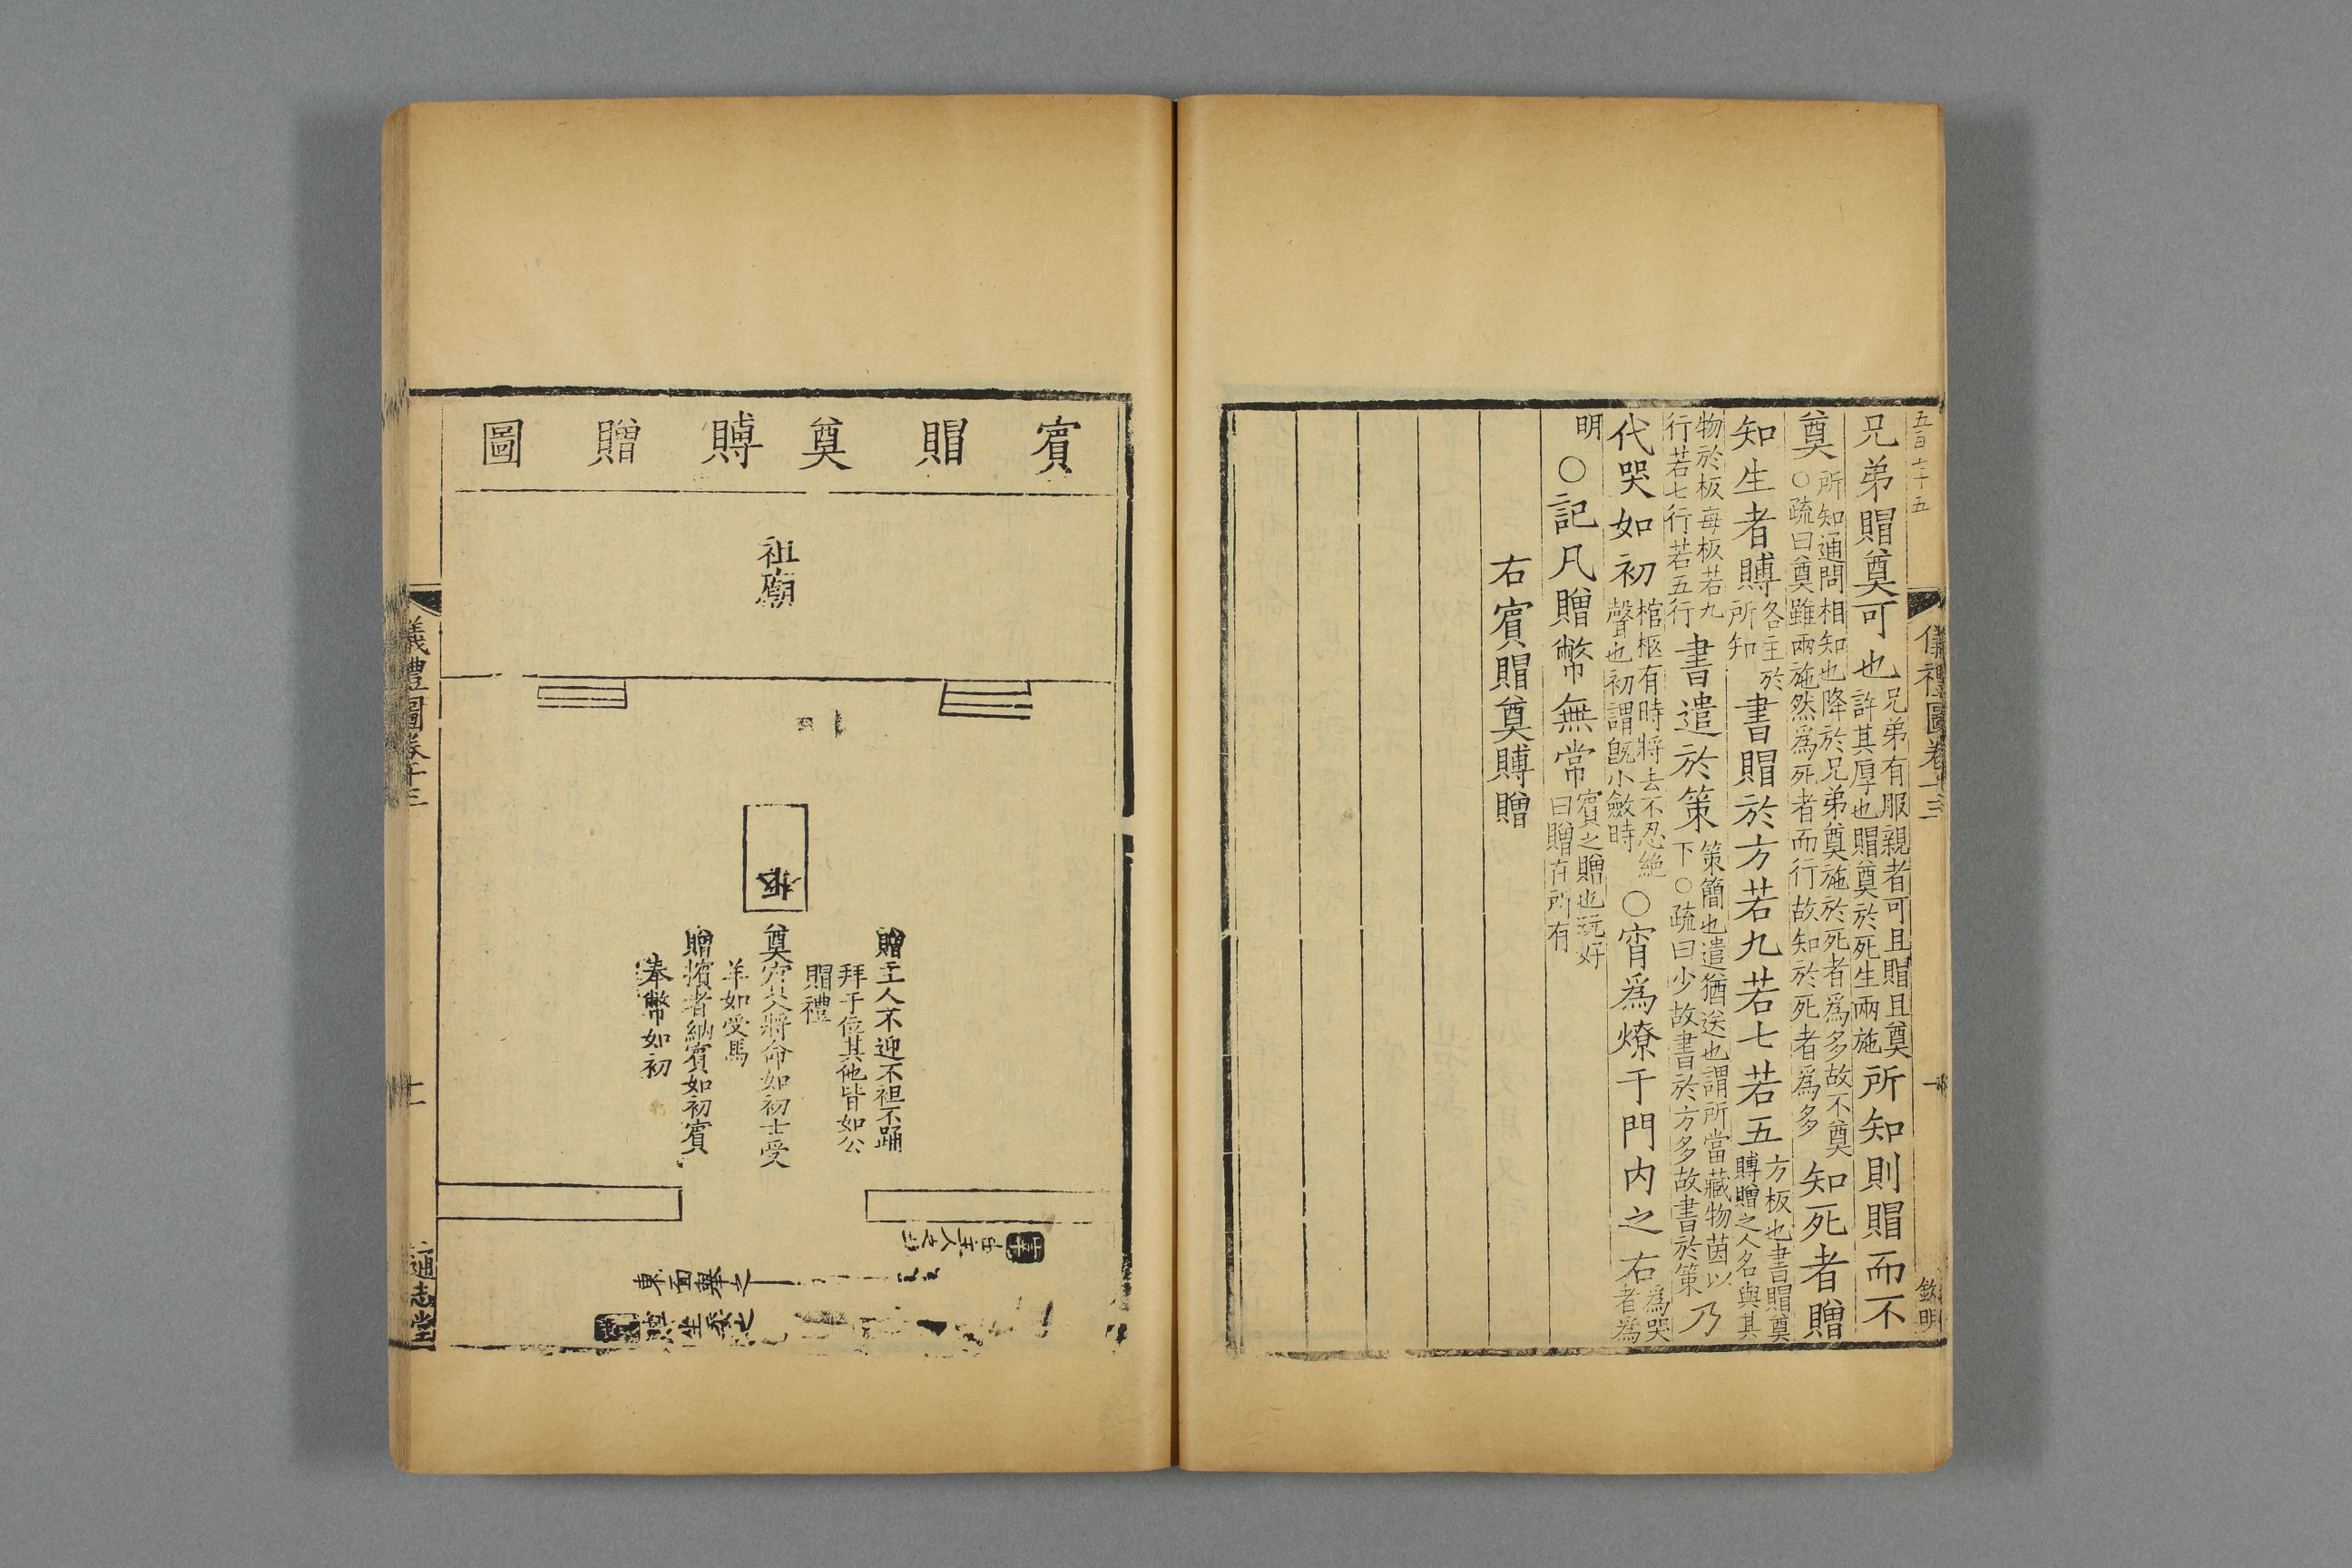 五百七十五
儀禮圖卷十三
欽明
兄弟賵奠可也兄弟有服親者可且賵且奠許其厚也賵奠於死生兩施所知則賵而不
奠所知通問相知也降於兄弟奠施於死者為多故不奠○疏曰奠雖兩施然為死者而行故知於死者為多知死者贈
知生者賻各主於所知書賵於方若九若七若五方板也書賵奠賻贈之人名與其
物於板每板若九行若七行若五行書遣於策策簡也遣猶送也謂所當藏物茵以下○疏曰少故書於方多故書於策乃
代哭如初棺柩有時將去不忍絕聲也初謂既小斂時○宵為燎于門内之右為哭者為
明○記凡贈幣無常賓之贈也玩好曰贈在所有
右賓賵奠賻贈
賓賵奠賻贈圖
祖廟
柩
主人不迎不袒不踊
拜于位其他皆如公
賵禮
奠
將命如初士受
羊如受馬
贈擯者納賓如初賓
奉幣如初
東面舉之
坐委之
儀禮圖卷十三
通志堂